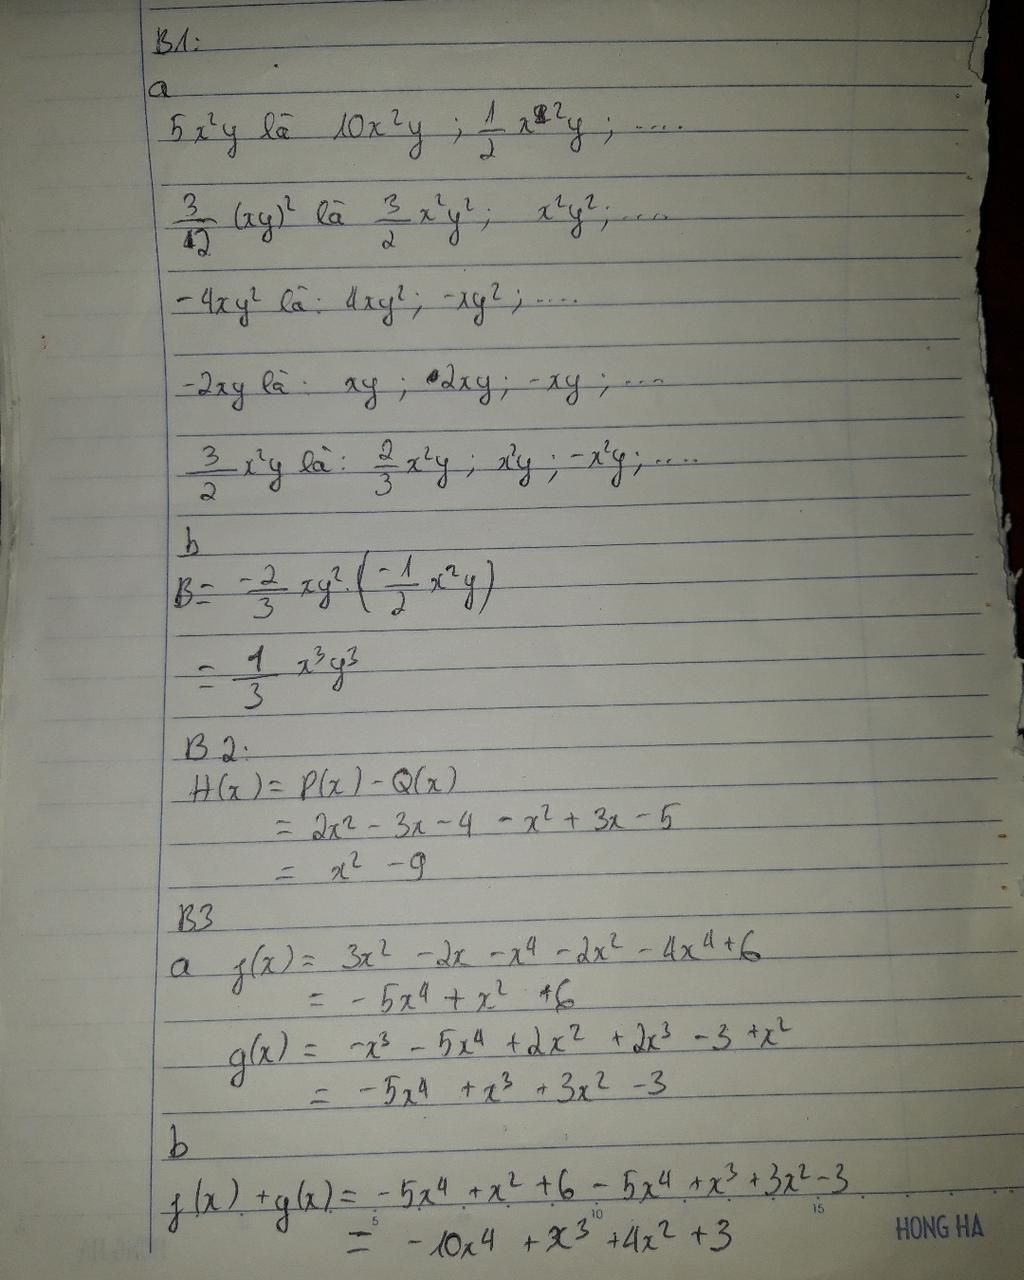 B1:
a
5x²y là 10x²y ; 1/2 x²y ; ....
3/2 (xy)² là 3/2 x²y² ; x²y² ; ....
-4xy² là : 4xy² ; -xy² ; ....
-2xy là : xy ; 2xy ; -xy ; ....
3/2 x²y là : 2/3 x²y ; x²y ; -x²y ; ....
b
B = -2/3 xy² . (-1/2 x²y)
= 1/3 x³y³
B2 :
H(x) = P(x) - Q(x)
= 2x² - 3x - 4 - x² + 3x - 5
= x² - 9
B3
a f(x) = 3x² - 2x - x⁴ - 2x² - 4x⁴ + 6
= - 5x⁴ + x² + 6
g(x) = -x³ - 5x⁴ + 2x² + 2x³ - 3 + x²
= -5x⁴ + x³ + 3x² - 3
b
f(x) + g(x) = -5x⁴ + x² + 6 - 5x⁴ + x³ + 3x² - 3
5 10 15
= -10x⁴ + x³ + 4x² + 3
HONG HA